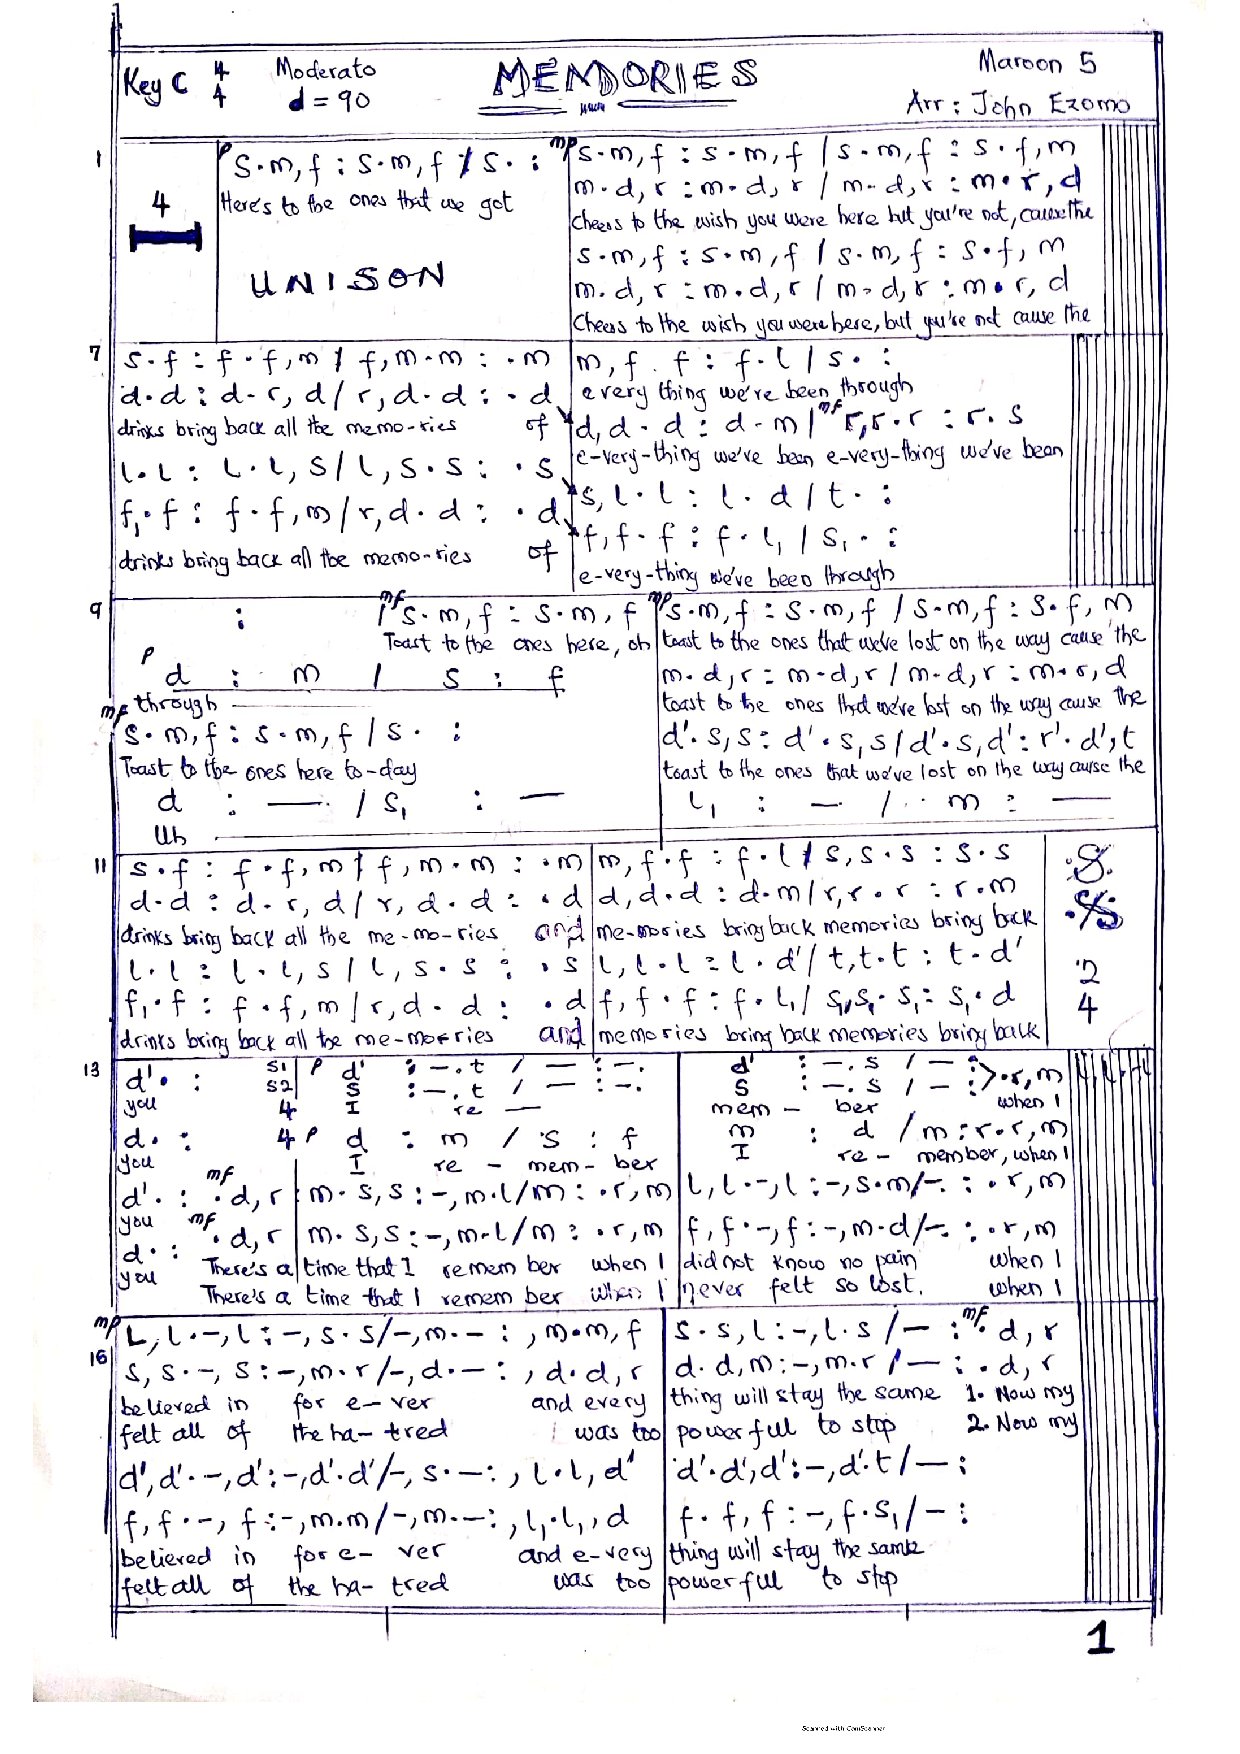 Key C 4/4 Moderato d = 90 MEMORIES Maroon 5
Arr : John Ezomo
1
4
p s.m,f : s.m,f / s. :
Here's to the ones that we got
UNISON
mp s.m,f : s.m,f / s.m,f : s.f,m
m.d,r : m.d,r / m.d,r : m.r,d
cheers to the wish you were here but you're not, cause the
s.m,f : s.m,f / s.m,f : s.f,m
m.d,r : m.d,r / m.d,r : m.r,d
Cheers to the wish you were here, but you're not cause the
7
s.f : f.f,m / f,m.m : .m
d.d : d.r,d / r,d.d : .d
drinks bring back all the memo-ries of
l.l : l.l,s / l,s.s : .s
f₁.f : f.f,m / r,d.d : .d
drinks bring back all the memo-ries of
m,f.f : f.l / s. :
everything we've been through
d,d.d : d.m / mf r,r.r : r.s
e-very-thing we've been e-very-thing we've been
s,l.l : l.d / t. :
f,f.f : f.l₁ / s₁. :
e-very-thing we've been through
9
: / mf s.m,f : s.m,f
Toast to the ones here, oh
p d : m / s : f
through
mf s.m,f : s.m,f / s. :
Toast to the ones here to-day
d : — / s₁ : —
Uh
mp s.m,f : s.m,f / s.m,f : s.f,m
toast to the ones that we've lost on the way cause the
m.d,r : m.d,r / m.d,r : m.r,d
toast to the ones that we've lost on the way cause the
d'.s,s : d'.s,s / d'.s,d' : r'.d',t
toast to the ones that we've lost on the way cause the
l₁ : — / .. m : —
11
s.f : f.f,m / f,m.m : .m
d.d : d.r,d / r,d.d : .d
drinks bring back all the me-mo-ries and
l.l : l.l,s / l,s.s : .s
f₁.f : f.f,m / r,d.d : .d
drinks bring back all the me-mo-ries and
m,f.f : f.l / s,s.s : s.s
d,d.d : d.m / r,r.r : r.m
me-mories bring back memories bring back
l,l.l : l.d' / t,t.t : t.d'
f,f.f : f.l₁ / s₁,s₁.s₁ : s₁.d
memories bring back memories bring back
2
4
13
d'. : S1 p d' : —.t / — : —. d' : —.s / — : .r,m
S2 s : —.t / — : —. s : —.s / — :
you 4 I re — mem - ber when I
d. : 4 p d : m / s : f m : d / m : r.r,m
you I re - mem - ber I re - member, when I
d'. : mf .d,r m.s,s : -,m.l / m : .r,m l,l.-,l : -,s.m / -. : .r,m
you
d. : mf .d,r m.s,s : -,m.l / m : .r,m f,f.-,f : -,m.d / -. : .r,m
you There's a time that I remem ber when I did not know no pain when I
There's a time that I remem ber when I never felt so lost. when I
16
mp l,l.-,l : -,s.s / -,m.- : ,m.m,f
s,s.-,s : -,m.r / -,d.- : ,d.d,r
believed in for e-ver and every
felt all of the ha-tred was too
d',d'.-,d' : -,d'.d' / -,s.- : ,l.l,d'
f,f.-,f : -,m.m / -,m.- : ,l₁.l₁,d
believed in for e- ver and e-very
felt all of the ha- tred was too
s.s,l : -,l.s / — : mf .d,r
d.d,m : -,m.r / — : .d,r
thing will stay the same 1. Now my
powerful to stop 2. Now my
d'.d',d' : -,d'.t / — :
f.f,f : -,f.s₁ / — :
thing will stay the same
powerful to stop
1
Scanned with CamScanner